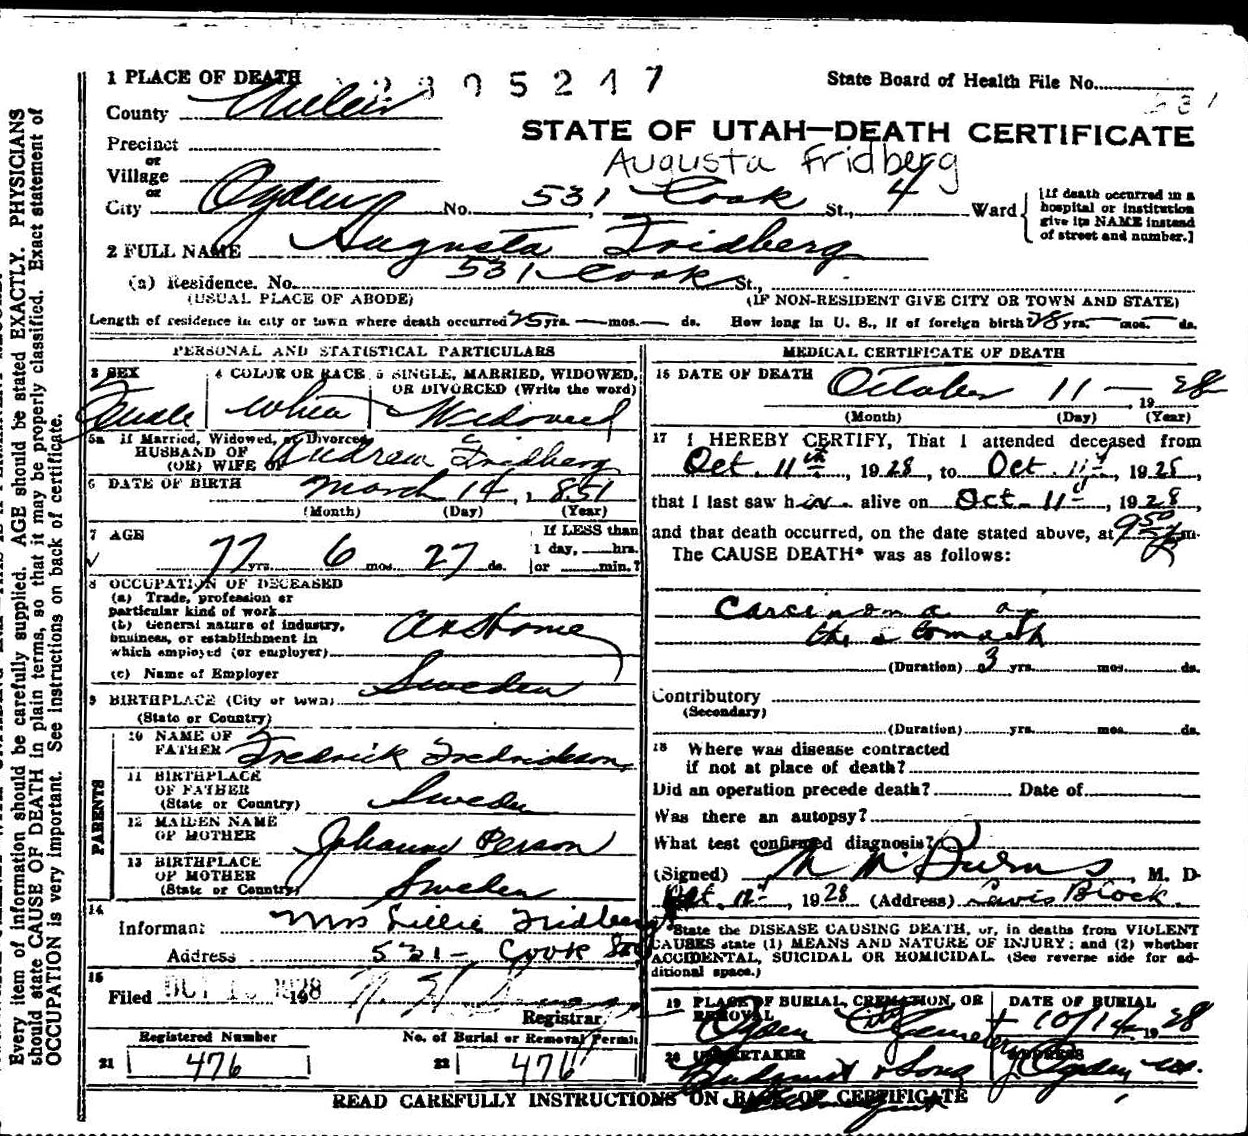 1 PLACE OF DEATH 2805247 State Board of Health File No.
County Weber
STATE OF UTAH—DEATH CERTIFICATE
Precinct
or
Village
Augusta Fridberg
or
City Ogden No. 531 Cook St., 4 Ward
[If death occurred in a hospital or institution give its NAME instead of street and number.]
2 FULL NAME Augusta Fridberg
(a) Residence. No. 531 Cook St.,
(USUAL PLACE OF ABODE) (IF NON-RESIDENT GIVE CITY OR TOWN AND STATE)
Length of residence in city or town where death occurred 25 yrs. — mos. — ds. How long in U. S., if of foreign birth 28 yrs. — mos. — ds.
PERSONAL AND STATISTICAL PARTICULARS
3 SEX 4 COLOR OR RACE 5 SINGLE, MARRIED, WIDOWED, OR DIVORCED (Write the word)
Female White Widowed
5a If Married, Widowed, or Divorced
HUSBAND OF
(OR) WIFE OF Andrew Fridberg
6 DATE OF BIRTH March 14, 1851
(Month) (Day) (Year)
7 AGE If LESS than
77 yrs. 6 mos. 27 ds. 1 day, hrs.
or min.?
8 OCCUPATION OF DECEASED
(a) Trade, profession or
particular kind of work
(b) General nature of industry,
business, or establishment in
which employed (or employer) At Home
(c) Name of Employer
9 BIRTHPLACE (City or town) Sweden
(State or Country)
PARENTS
10 NAME OF
FATHER Fredrick Fredrickson
11 BIRTHPLACE
OF FATHER
(State or Country) Sweden
12 MAIDEN NAME
OF MOTHER Johanna Person
13 BIRTHPLACE
OF MOTHER
(State or Country) Sweden
14
Informant Mrs Lillie Fridberg
Address 531 - Cook St
15
Filed OCT 1928
Registrar
Registered Number No. of Burial or Removal Permit
21 476 22 476
MEDICAL CERTIFICATE OF DEATH
16 DATE OF DEATH October 11 — 1928
(Month) (Day) (Year)
17 I HEREBY CERTIFY, That I attended deceased from
Oct. 11th, 1928 to Oct. 11th, 1928,
that I last saw h alive on Oct. 11th, 1928
and that death occurred, on the date stated above, at 9 50 m.
The CAUSE DEATH* was as follows:
Carcinoma of
the stomach
(Duration) 3 yrs. mos. ds.
Contributory
(Secondary)
(Duration) yrs. mos. ds.
18 Where was disease contracted
if not at place of death?
Did an operation precede death? Date of
Was there an autopsy?
What test confirmed diagnosis?
(Signed) , M. D.
Oct. 12, 1928 (Address) Lewis Block
*State the DISEASE CAUSING DEATH, or, in deaths from VIOLENT
CAUSES state (1) MEANS AND NATURE OF INJURY; and (2) whether
ACCIDENTAL, SUICIDAL OR HOMICIDAL. (See reverse side for ad-
ditional space.)
19 PLACE OF BURIAL, CREMATION, OR REMOVAL DATE OF BURIAL
Ogden City Cemetery 10/14 1928
20 UNDERTAKER ADDRESS
Lindquist & Sons Ogden
READ CAREFULLY INSTRUCTIONS ON BACK OF CERTIFICATE
Every item of information should be carefully supplied. AGE should be stated EXACTLY. PHYSICIANS
should state CAUSE OF DEATH in plain terms, so that it may be properly classified. Exact statement of
OCCUPATION is very important. See instructions on back of certificate.